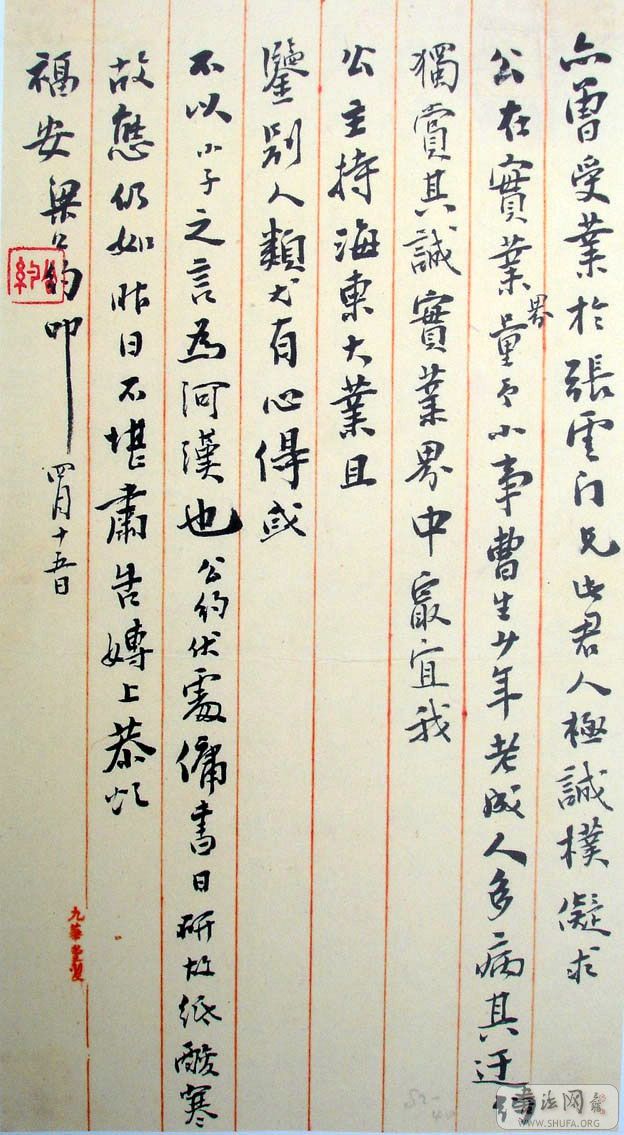 亦曾受業於張雲门兄此君人極誠樸儗求
公在實業界量予小事曹生少年老成人多病其迂
獨賞其誠實業界中最宜我
公主持海東大業且
鑒别人類尤有心得或
不以小子之言為河漢也公約伏處傭書日研故紙酸寒
故態仍如昨日不堪肅告専上恭頌
福安 梁公約叩 四月十五日
約
九華堂製
书法网
WWW.SHUFA.ORG